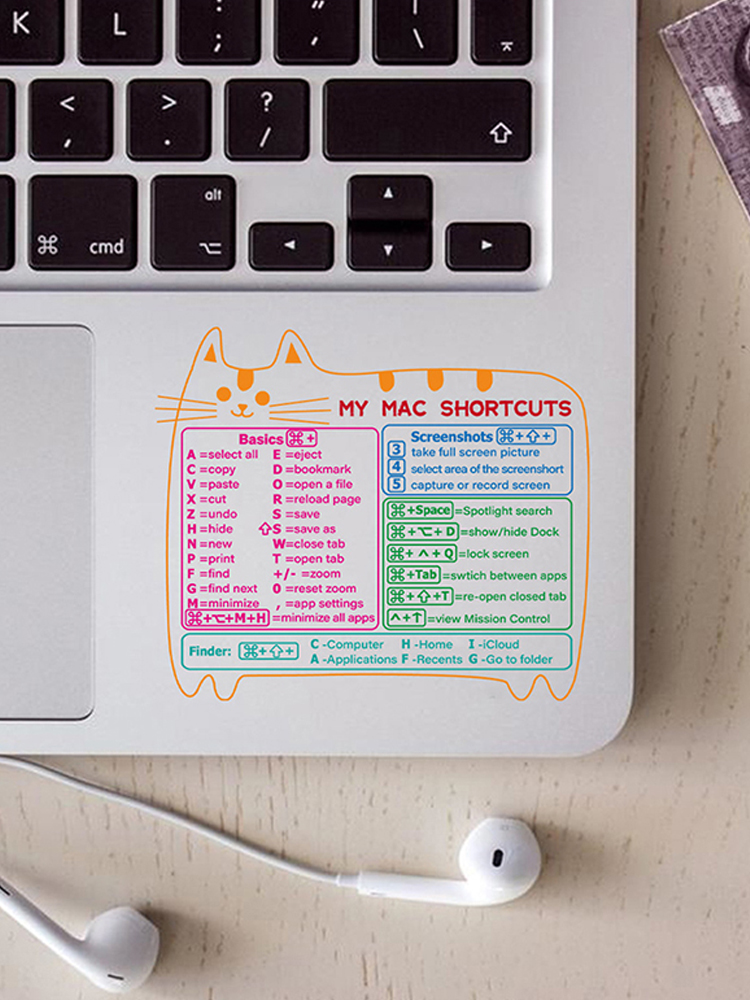 K L : ; " ' | \
< , > . ? / ⇧
⌘ cmd alt ⌥ ◄ ▲ ▼ ►
MY MAC SHORTCUTS
Basics ⌘+
A =select all E =eject
C =copy D =bookmark
V =paste O =open a file
X =cut R =reload page
Z =undo S =save
H =hide ⇧S =save as
N =new W=close tab
P =print T =open tab
F =find +/- =zoom
G =find next 0 =reset zoom
M=minimize , =app settings
⌘+⌥+M+H =minimize all apps
Screenshots ⌘+⇧+
3 take full screen picture
4 select area of the screenshort
5 capture or record screen
⌘+Space =Spotlight search
⌘+⌥+ D =show/hide Dock
⌘+ ^ + Q =lock screen
⌘+Tab =swtich between apps
⌘+⇧+T =re-open closed tab
^+↑ =view Mission Control
Finder: ⌘+⇧+
C -Computer H -Home I -iCloud
A -Applications F -Recents G -Go to folder